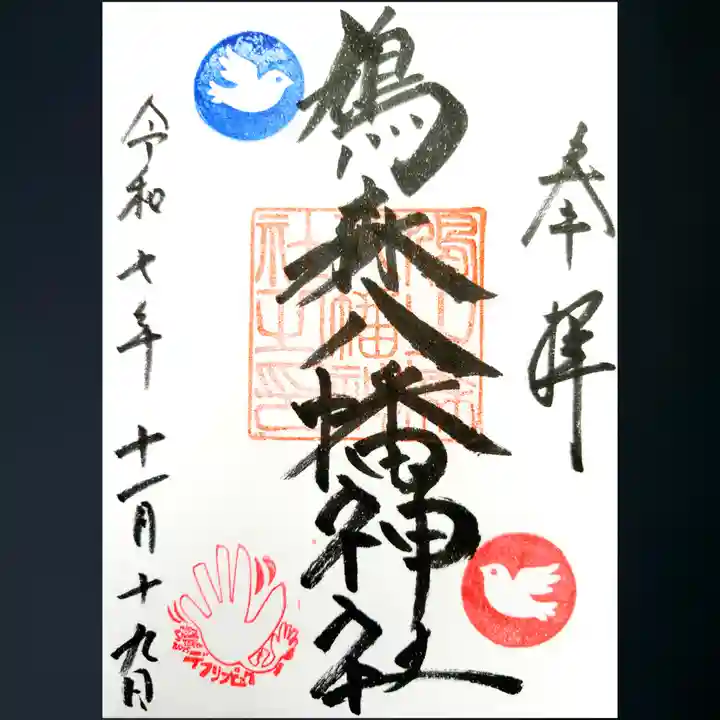 奉拝
鳩森八幡神社
令和七年十一月十九日
デフリンピック